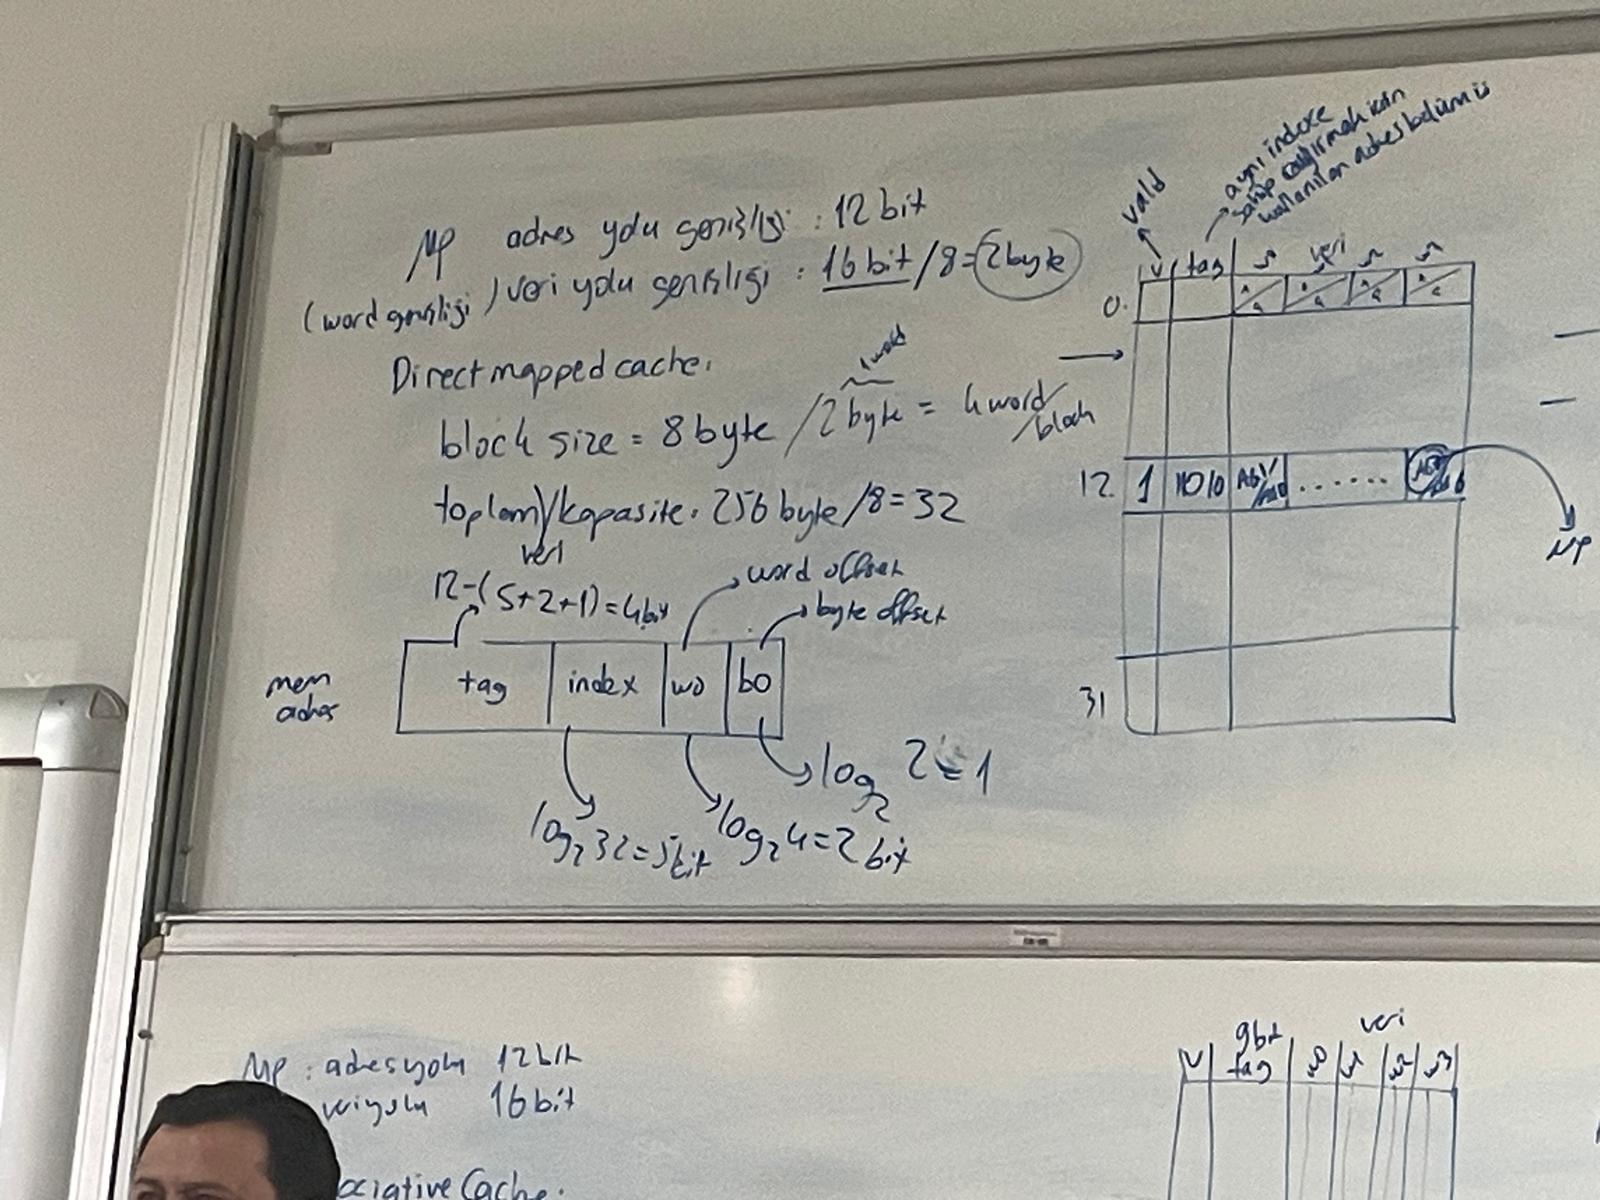 µP adres yolu genişliği : 12 bit
(word genişliği) veri yolu genişliği : 16 bit / 8 = 2 byte
Direct mapped cache.
1 word
block size = 8 byte / 2 byte = 4 word / block
toplam / kapasite . 256 byte / 8 = 32
veri
12 - (5+2+1) = 4 bit
word offset
byte offset
mem adres
tag index wo bo
log₂ 2 = 1
log₂ 32 = 5 bit
log₂ 4 = 2 bit
valid
aynı indexe
sahip
kullanılan adres bölümü
veri
V tag
0.
12. 1 1010 .......
µP
31
µP : adresyolu 12 bit
veriyolu 16 bit
ociative Cache.
9bit veri
V tag w0 w1 w2 w3